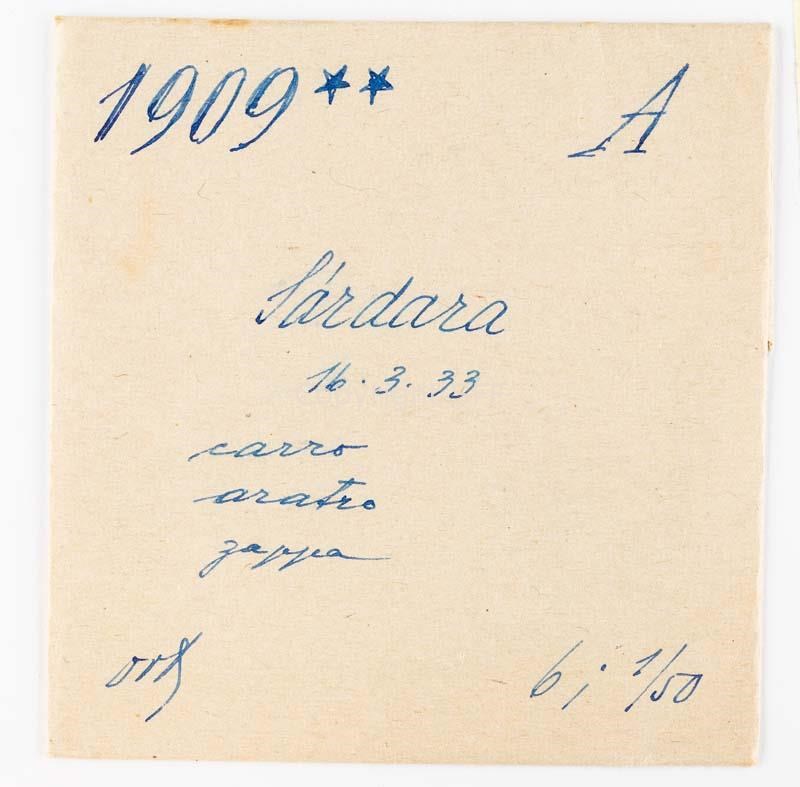 1909** A
Sárdara
16.3.33
carro
aratro
zappa
orth 6; 1/50